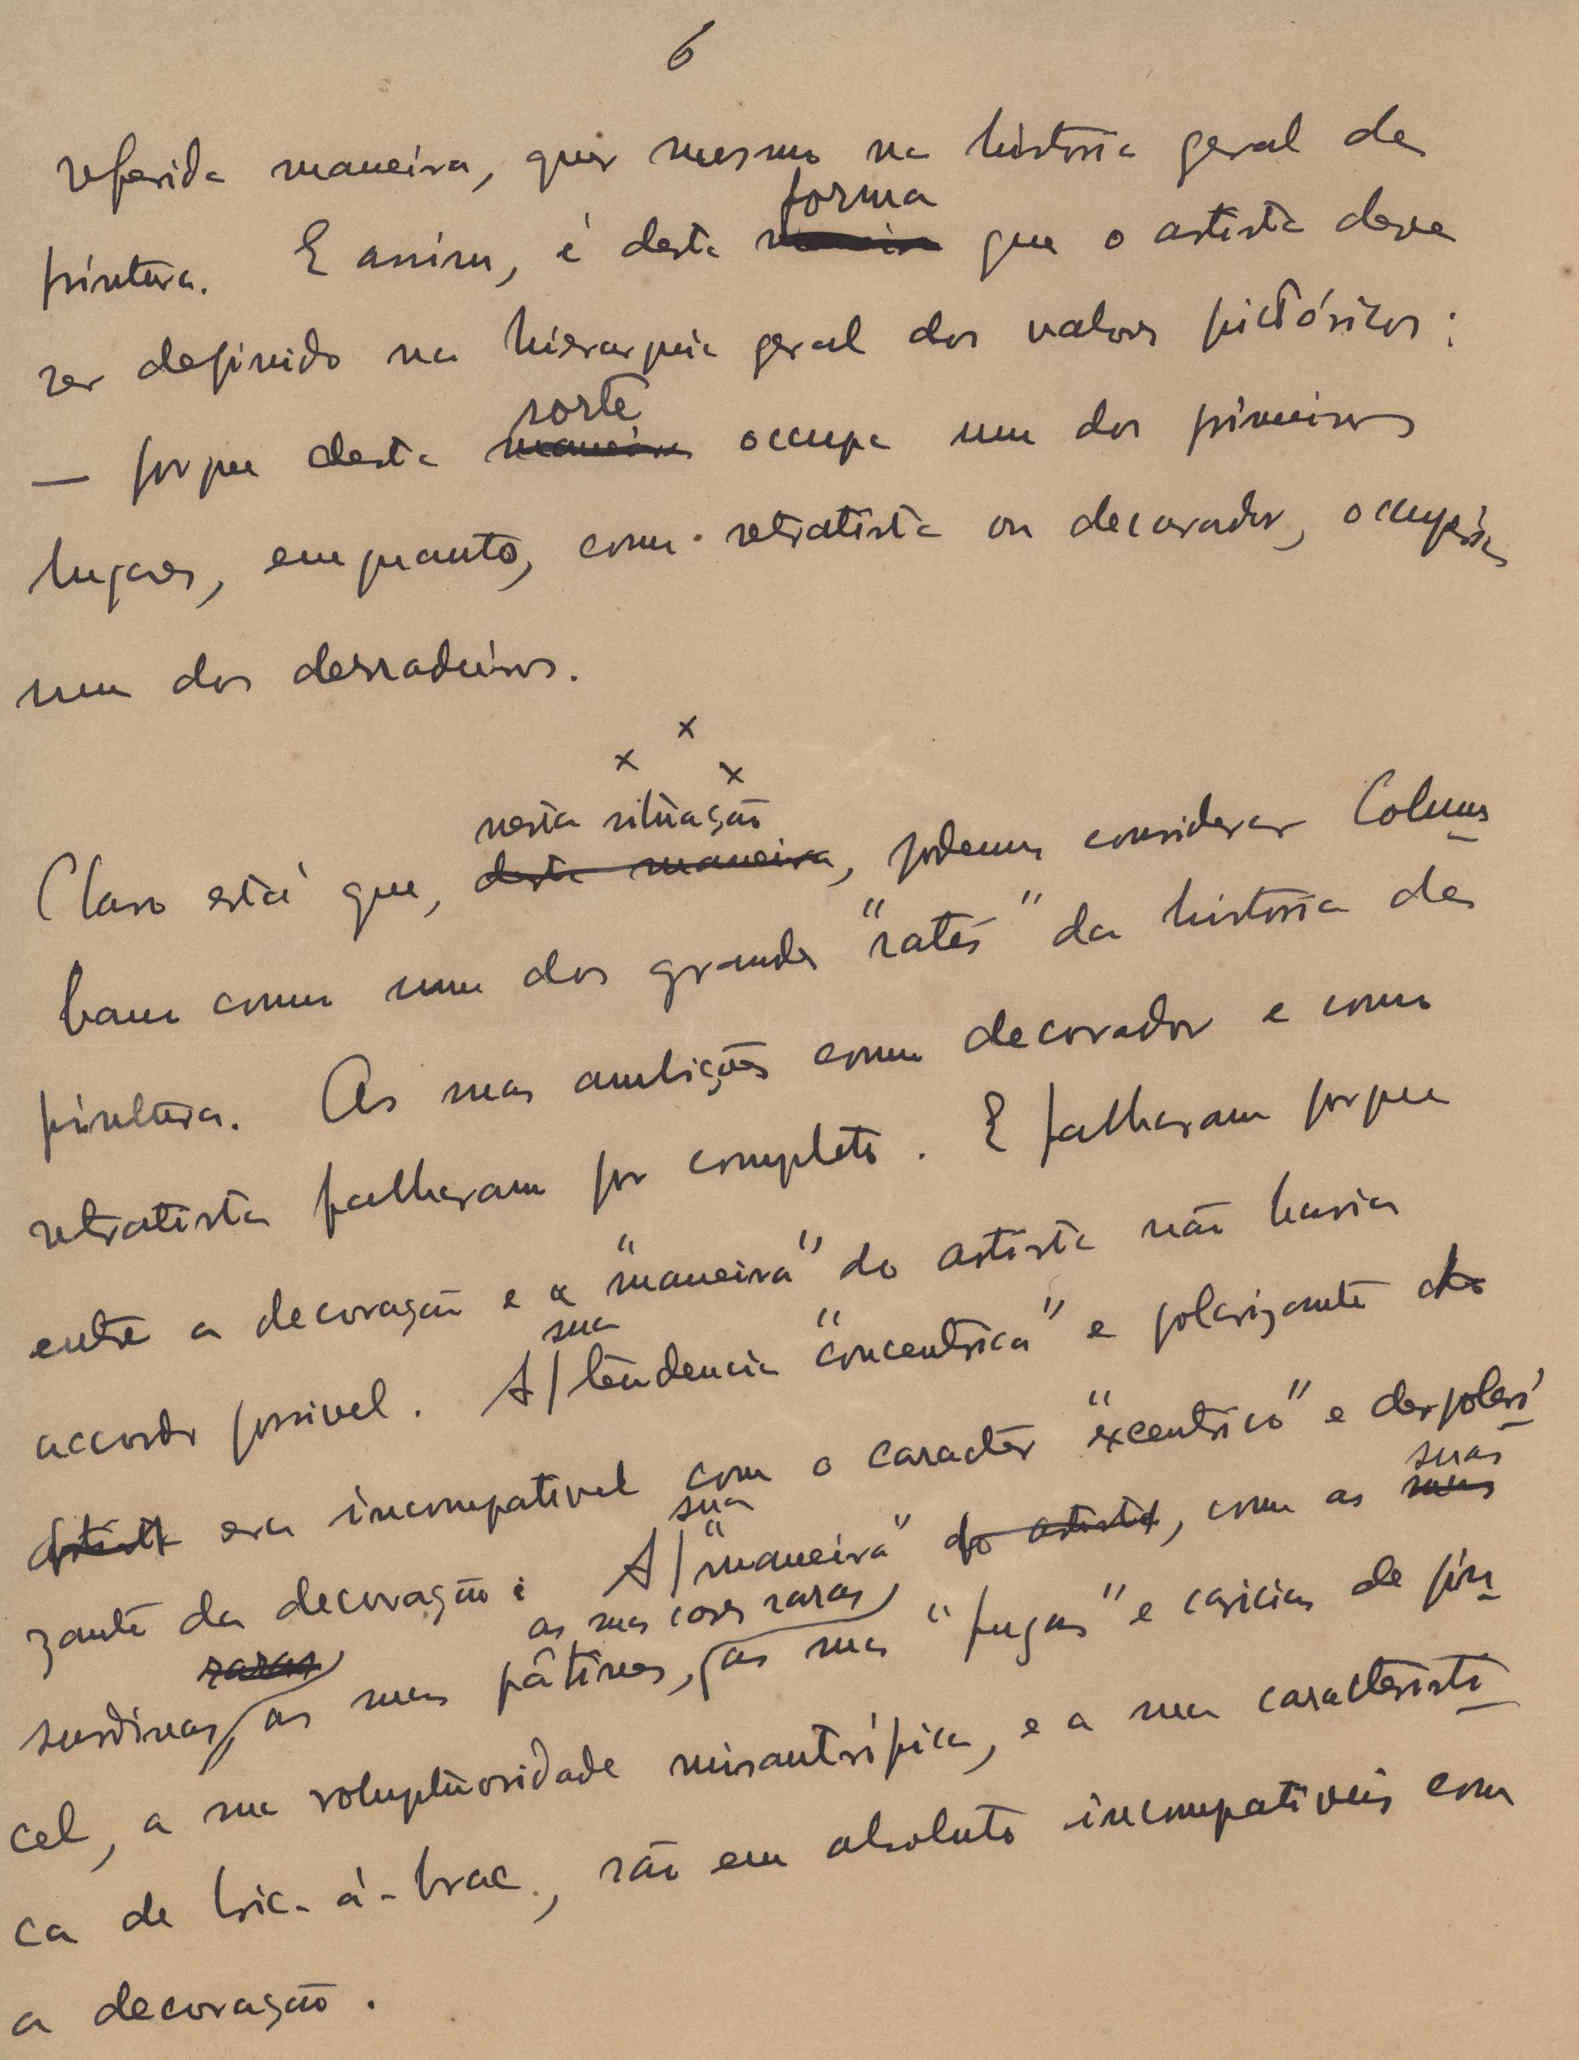 6
referida maneira, quer mesmo na historia geral da
forma
pintura. E assim, é desta maneira que o artista deve
ser definido na hierarquia geral dos valores pictóricos:
sorte
— porque desta maneira occupa um dos primeiros
lugares, emquanto, como retratista ou decorador, occuparia
um dos derradeiros.
x x x
nesta situação
Claro está que, desta maneira, podemos considerar Colum
bano como um dos grandes "ratés" da historia da
pintura. As suas ambições como decorador e como
retratista falharam por completo. E falharam porque
entre a decoração e a "maneira" do artista não havia
sua
accordo possivel. A tendencia "concentrica" e polarizante do
artista era incompativel com o caracter "excentrico" e despolari
sua suas
zante da decoração: A "maneira" do artista, com as suas
raras as suas cores raras
surdinas, as suas pâtines, as suas "fugas" e caricias de pin
cel, a sua voluptuosidade misantrópica, e a sua caracteristi
ca de bric-à-brac, são em absoluto incompativeis com
a decoração.